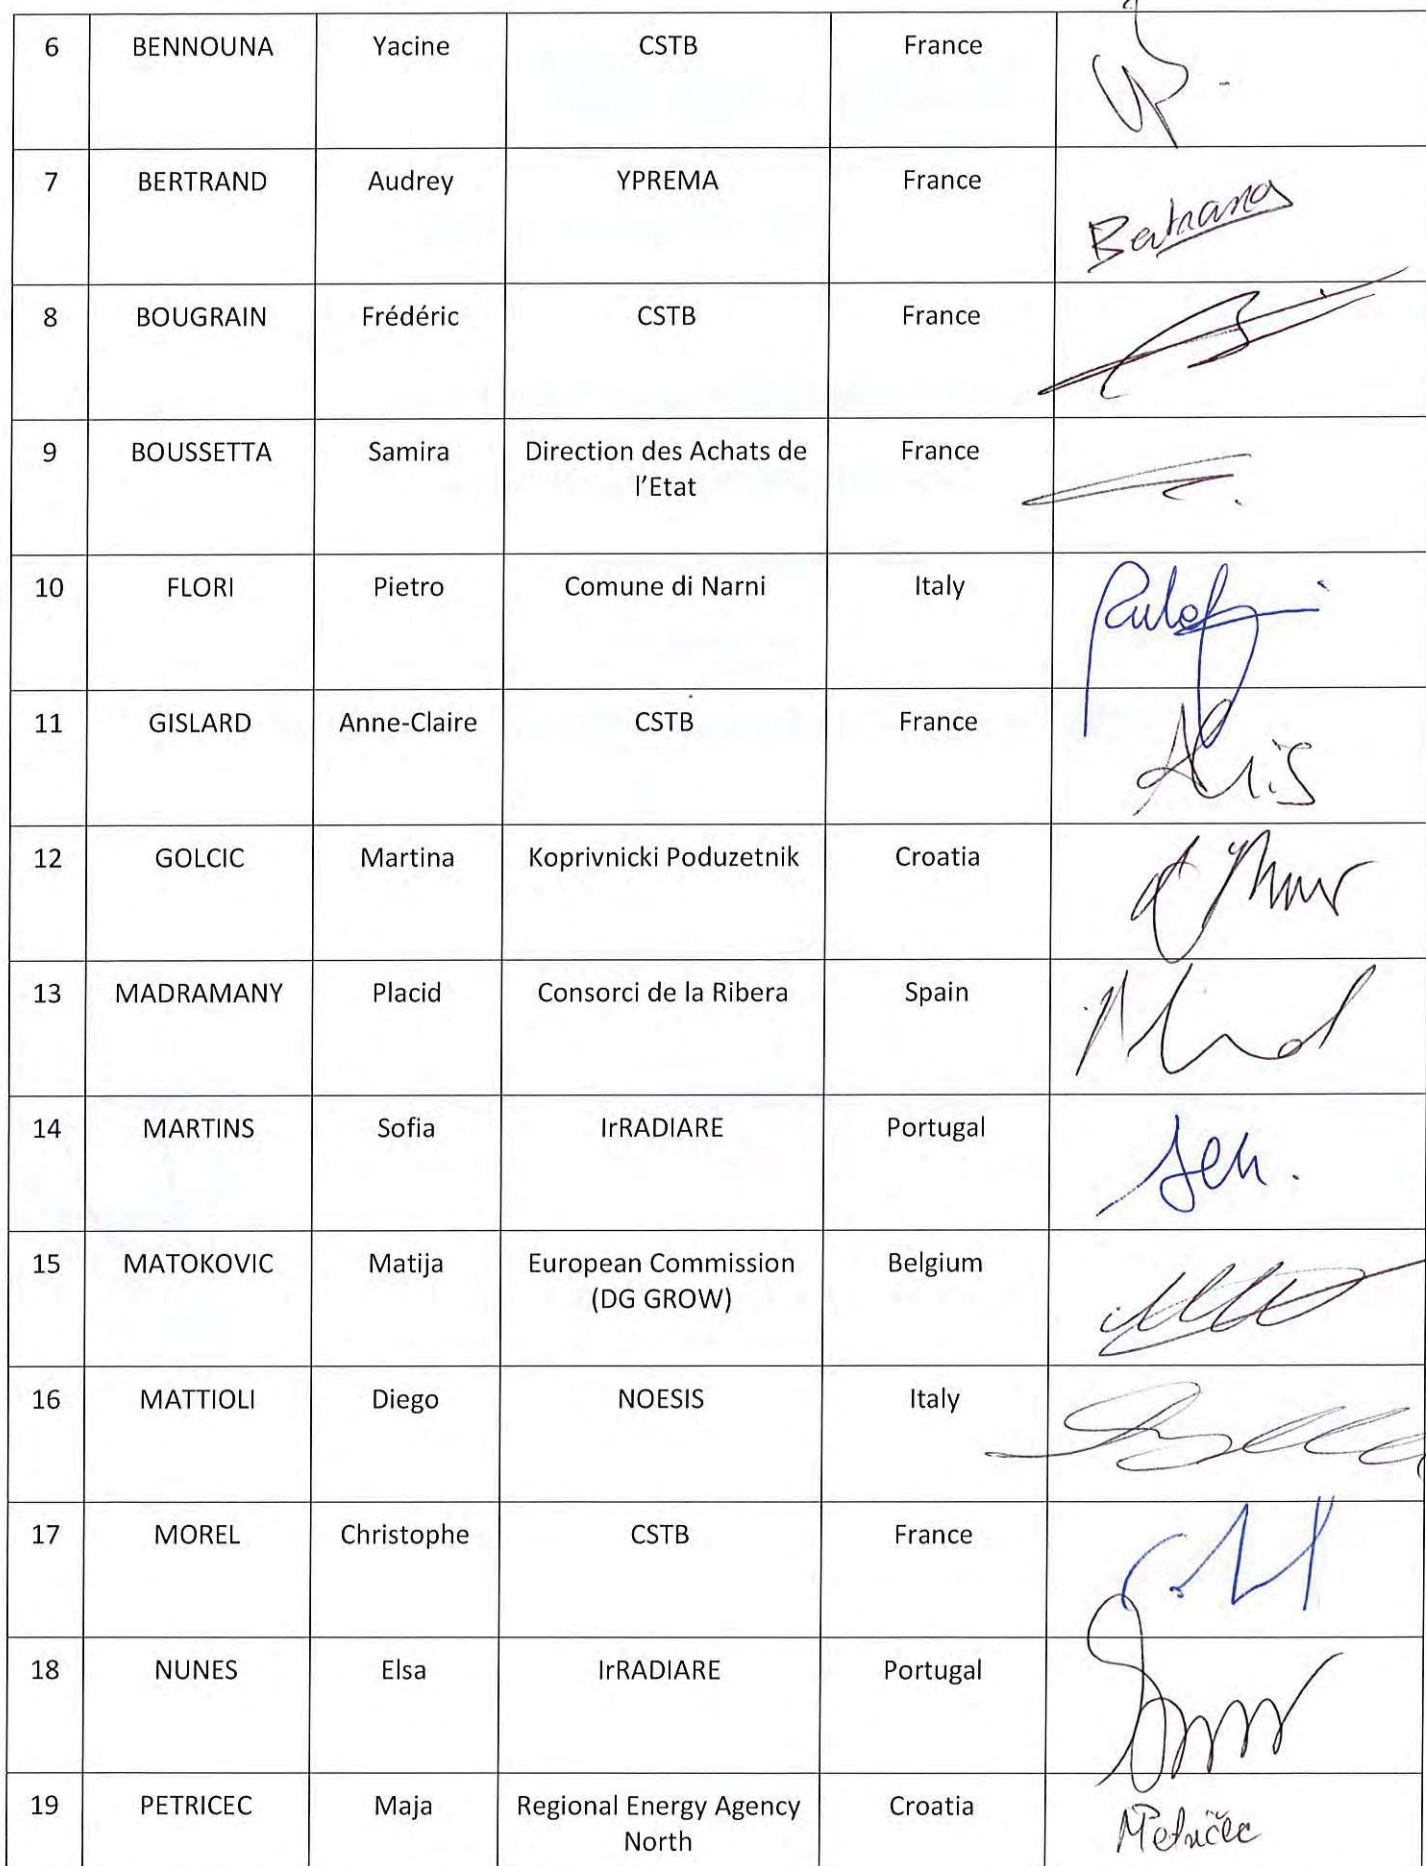 6 BENNOUNA Yacine CSTB France
7 BERTRAND Audrey YPREMA France Bertrand
8 BOUGRAIN Frédéric CSTB France
9 BOUSSETTA Samira Direction des Achats de France
l'Etat
10 FLORI Pietro Comune di Narni Italy
11 GISLARD Anne-Claire CSTB France
12 GOLCIC Martina Koprivnicki Poduzetnik Croatia
13 MADRAMANY Placid Consorci de la Ribera Spain
14 MARTINS Sofia IrRADIARE Portugal
15 MATOKOVIC Matija European Commission Belgium
(DG GROW)
16 MATTIOLI Diego NOESIS Italy
17 MOREL Christophe CSTB France
18 NUNES Elsa IrRADIARE Portugal
19 PETRICEC Maja Regional Energy Agency Croatia MPetričec
North